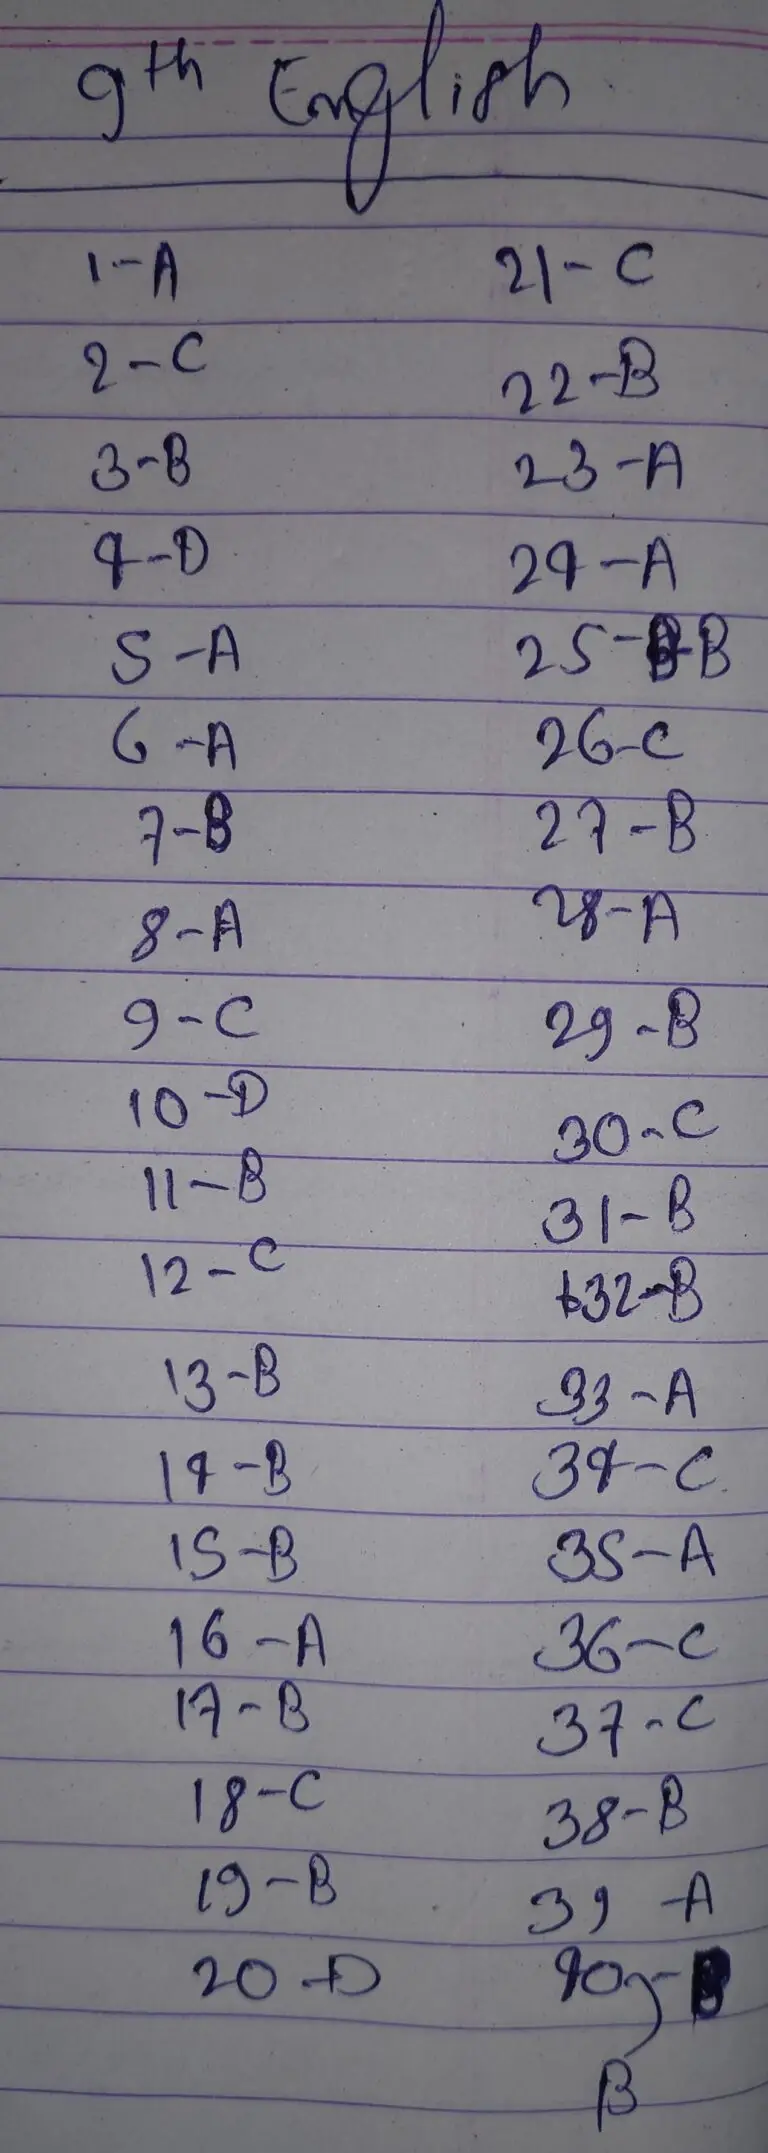 9th English
1-A
2-C
3-B
4-D
5-A
6-A
7-B
8-A
9-C
10-D
11-B
12-C
13-B
14-B
15-B
16-A
17-B
18-C
19-B
20-D
21-C
22-B
23-A
24-A
25-B
26-C
27-B
28-A
29-B
30-C
31-B
32-B
33-A
34-C
35-A
36-C
37-C
38-B
39-A
40-B
B